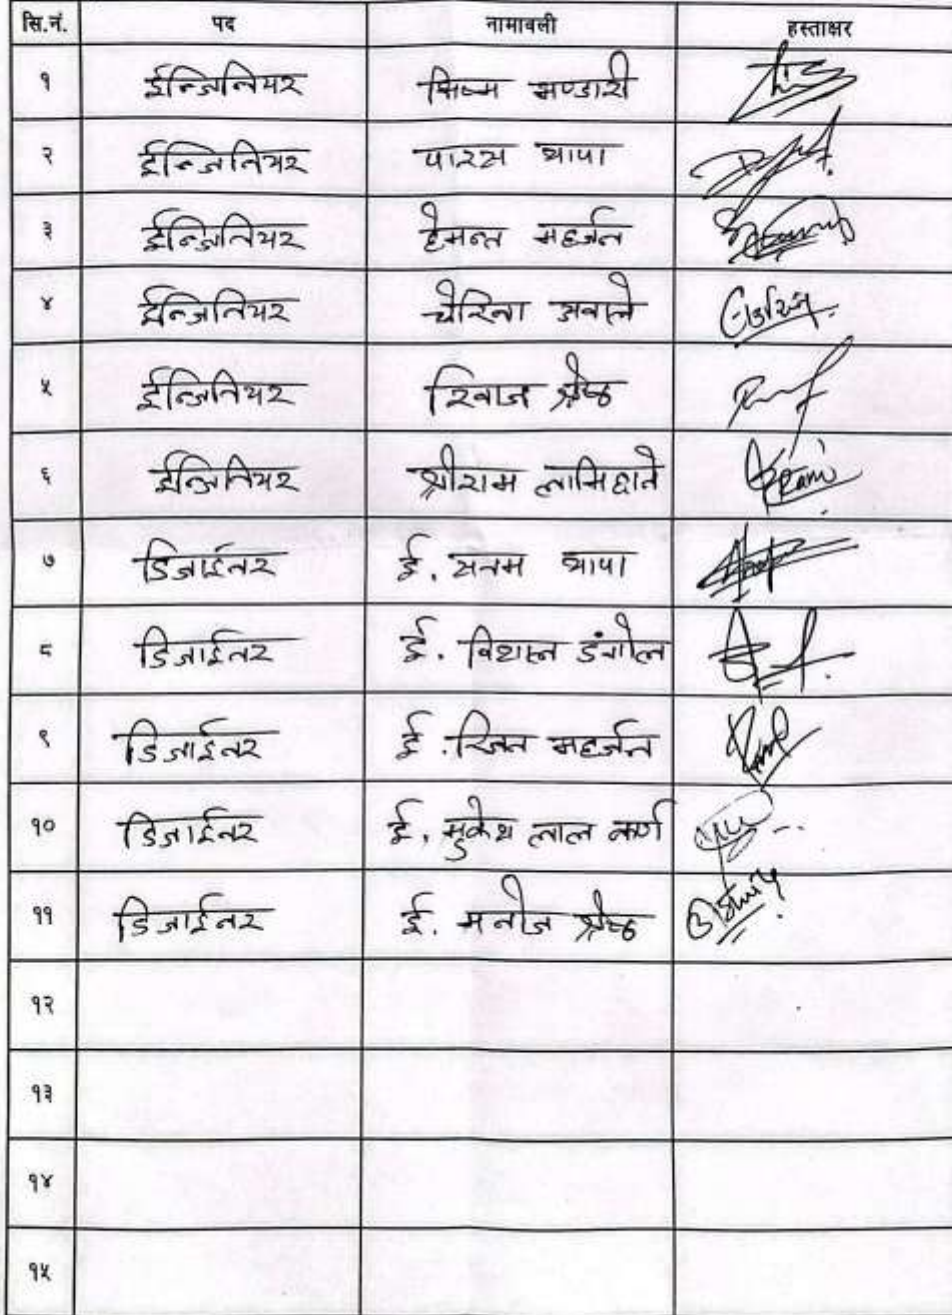 सि.नं. पद नामावली हस्ताक्षर
१ ईन्जिनियर भिष्म भण्डारी
२ ईन्जिनियर पारस थापा
३ ईन्जिनियर हेमन्त महर्जन
४ ईन्जिनियर चेरिना अवाले
५ ईन्जिनियर रिवाज श्रेष्ठ
६ ईन्जिनियर श्रीराम लामिछाने
७ डिजाईनर ई. सनम थापा
८ डिजाईनर ई. विशाल डंगोल
९ डिजाईनर ई. महर्जन
१० डिजाईनर ई. मुकेश लाल कर्ण
११ डिजाईनर ई. मनोज श्रेष्ठ
१२
१३
१४
१५